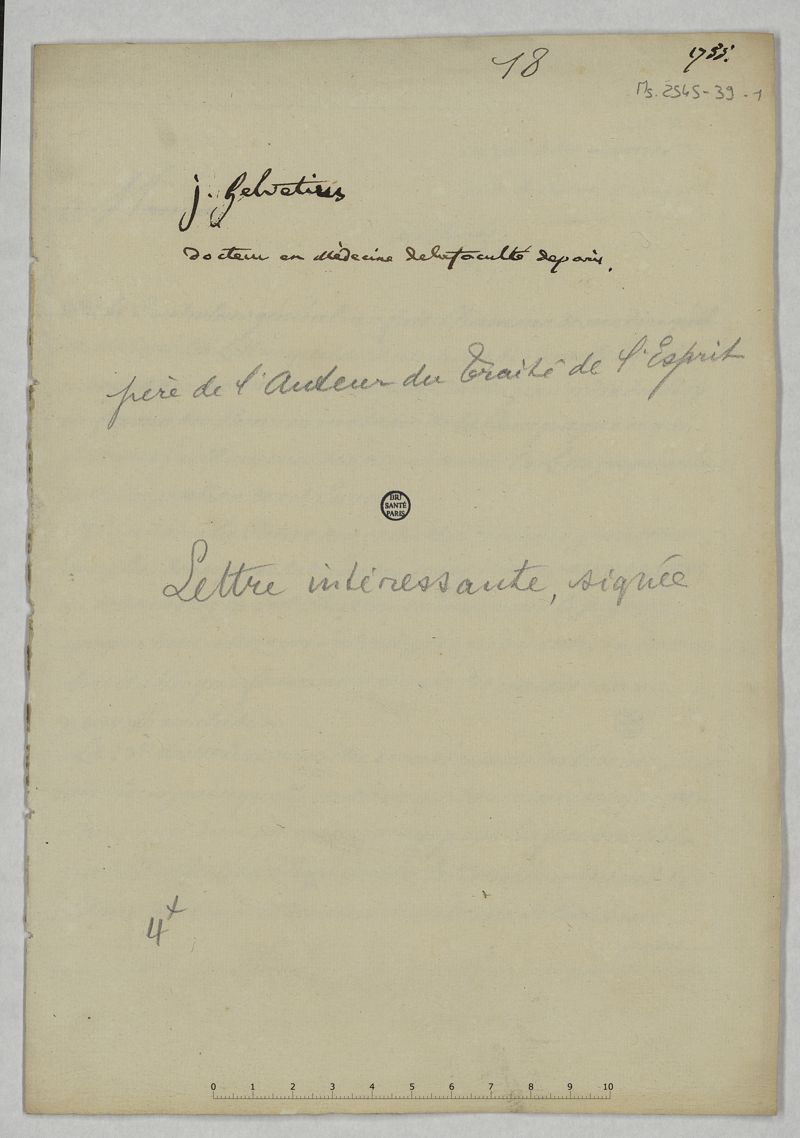 18
1755.
Ms. 2545-39-1
j. helvetius
docteur en médecine delafaculté deparis.
père de l'Auteur du Traité de l'Esprit
BIU
SANTÉ
PARIS
Lettre intéressante, signée
4+
0 1 2 3 4 5 6 7 8 9 10